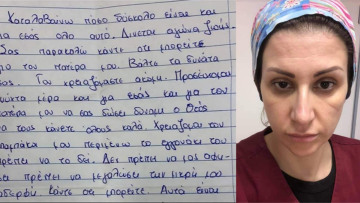 Καταλαβαίνω πόσο δύσκολο είναι και
για εσάς όλο αυτό. Δίνεται αγώνα ζωής.
Σας παρακαλώ κάντε ότι μπορείτε
για τον πατέρα μου. Βάλτε τα δυνατά
σας. Τον χρειαζόμαστε ακόμη. Προσεύχομαι
νύχτα μέρα και για εσάς και για τον
πατέρα μου να σας δώσει δύναμη ο Θεός
να τους κάνετε όλους καλά. Χρειάζομαι τον
μπαμπά μου περιμένει το εγγονάκι του
πρέπει να το δει. Δεν πρέπει να μας αφήσει
πρέπει να μεγαλώσει την μικρή μου
αδερφή. Κάντε ότι μπορείτε. Αυτό είναι